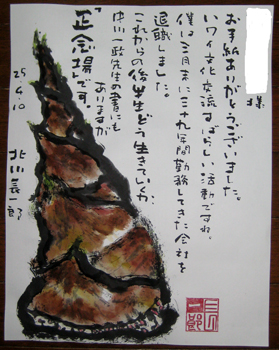 様
お手紙ありがとうございました。
ハワイ文化交流すばらしい活動ですね。
僕は三月末に三十九年間勤務してきた会社を
退職しました。
これからの後半生どう生きていくか、
中川一政先生の書にも
ありますが
「正念場」です。
25.4.10
北川長一郎